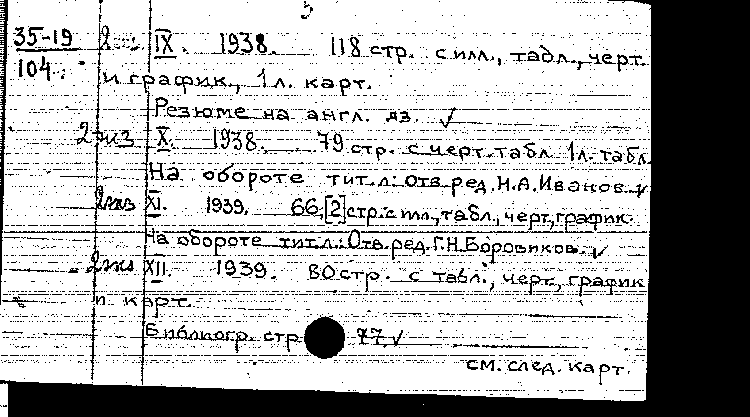 5
35-19 2 IX. 1938. 118 стр. с илл., табл., черт.
104. и график., 1 л. карт.
Резюме на англ. яз. ✓
2 экз X. 1938. 79 стр. с черт. табл. 1 л. табл.
На обороте тит. л.: Отв. ред. Н.А. Иванов. ✓
2 экз XI. 1939. 66,[2] стр. с илл., табл., черт., график.
На обороте тит. л.: Отв. ред. Г.Н. Боровиков. ✓
2 экз XII. 1939. 80 стр. с табл., черт., график
и карт.
Библиогр. стр. 77. ✓
см. след. карт.